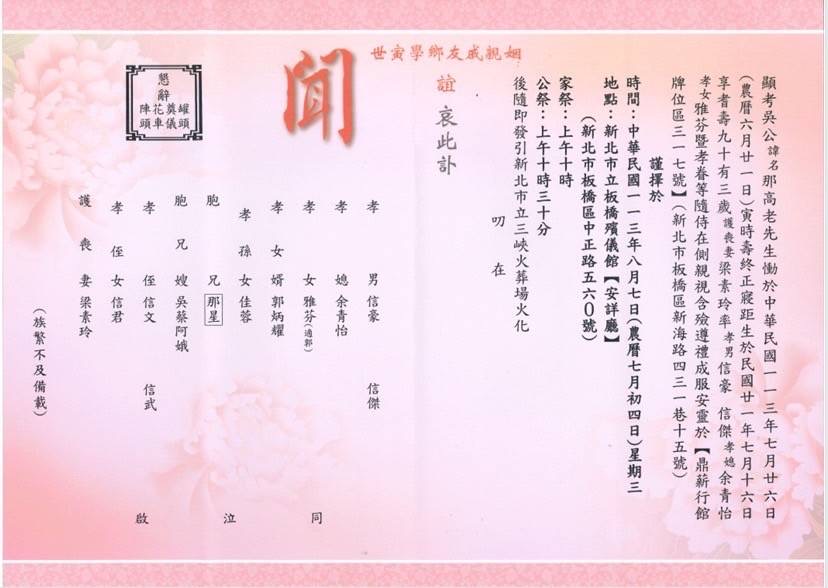 顯考吳公諱名那高老先生慟於中華民國一一三年七月廿六日
(農曆六月廿一日)寅時壽終正寢距生於民國廿一年七月十六日
享耆壽九十有三歲護喪妻梁素玲率孝男信豪 信傑孝媳余青怡
孝女雅芬暨孝眷等隨侍在側親視含殮遵禮成服安靈於【鼎薪行館
牌位區三一七號】(新北市板橋區新海路四三一巷十五號)
謹擇於
時間:中華民國一一三年八月七日(農曆七月初四日)星期三
地點:新北市立板橋殯儀館【安詳廳】
(新北市板橋區中正路五六0號)
家祭:上午十時
公祭:上午十時三十分
後隨即發引新北市立三峽火葬場火化
叨在
誼 哀此訃
姻親戚友鄉學寅世
聞
懇辭
罐頭
奠儀
花車
陣頭
孝男 信豪 信傑
孝媳 余青怡
孝女 雅芬(適郭)
孝女婿 郭炳耀
孝孫女 佳蓉
胞兄 那星
胞兄嫂 吳蔡阿娥
孝姪 信文 信武
孝姪女 信君
護喪妻 梁素玲
同 泣 啟
(族繁不及備載)